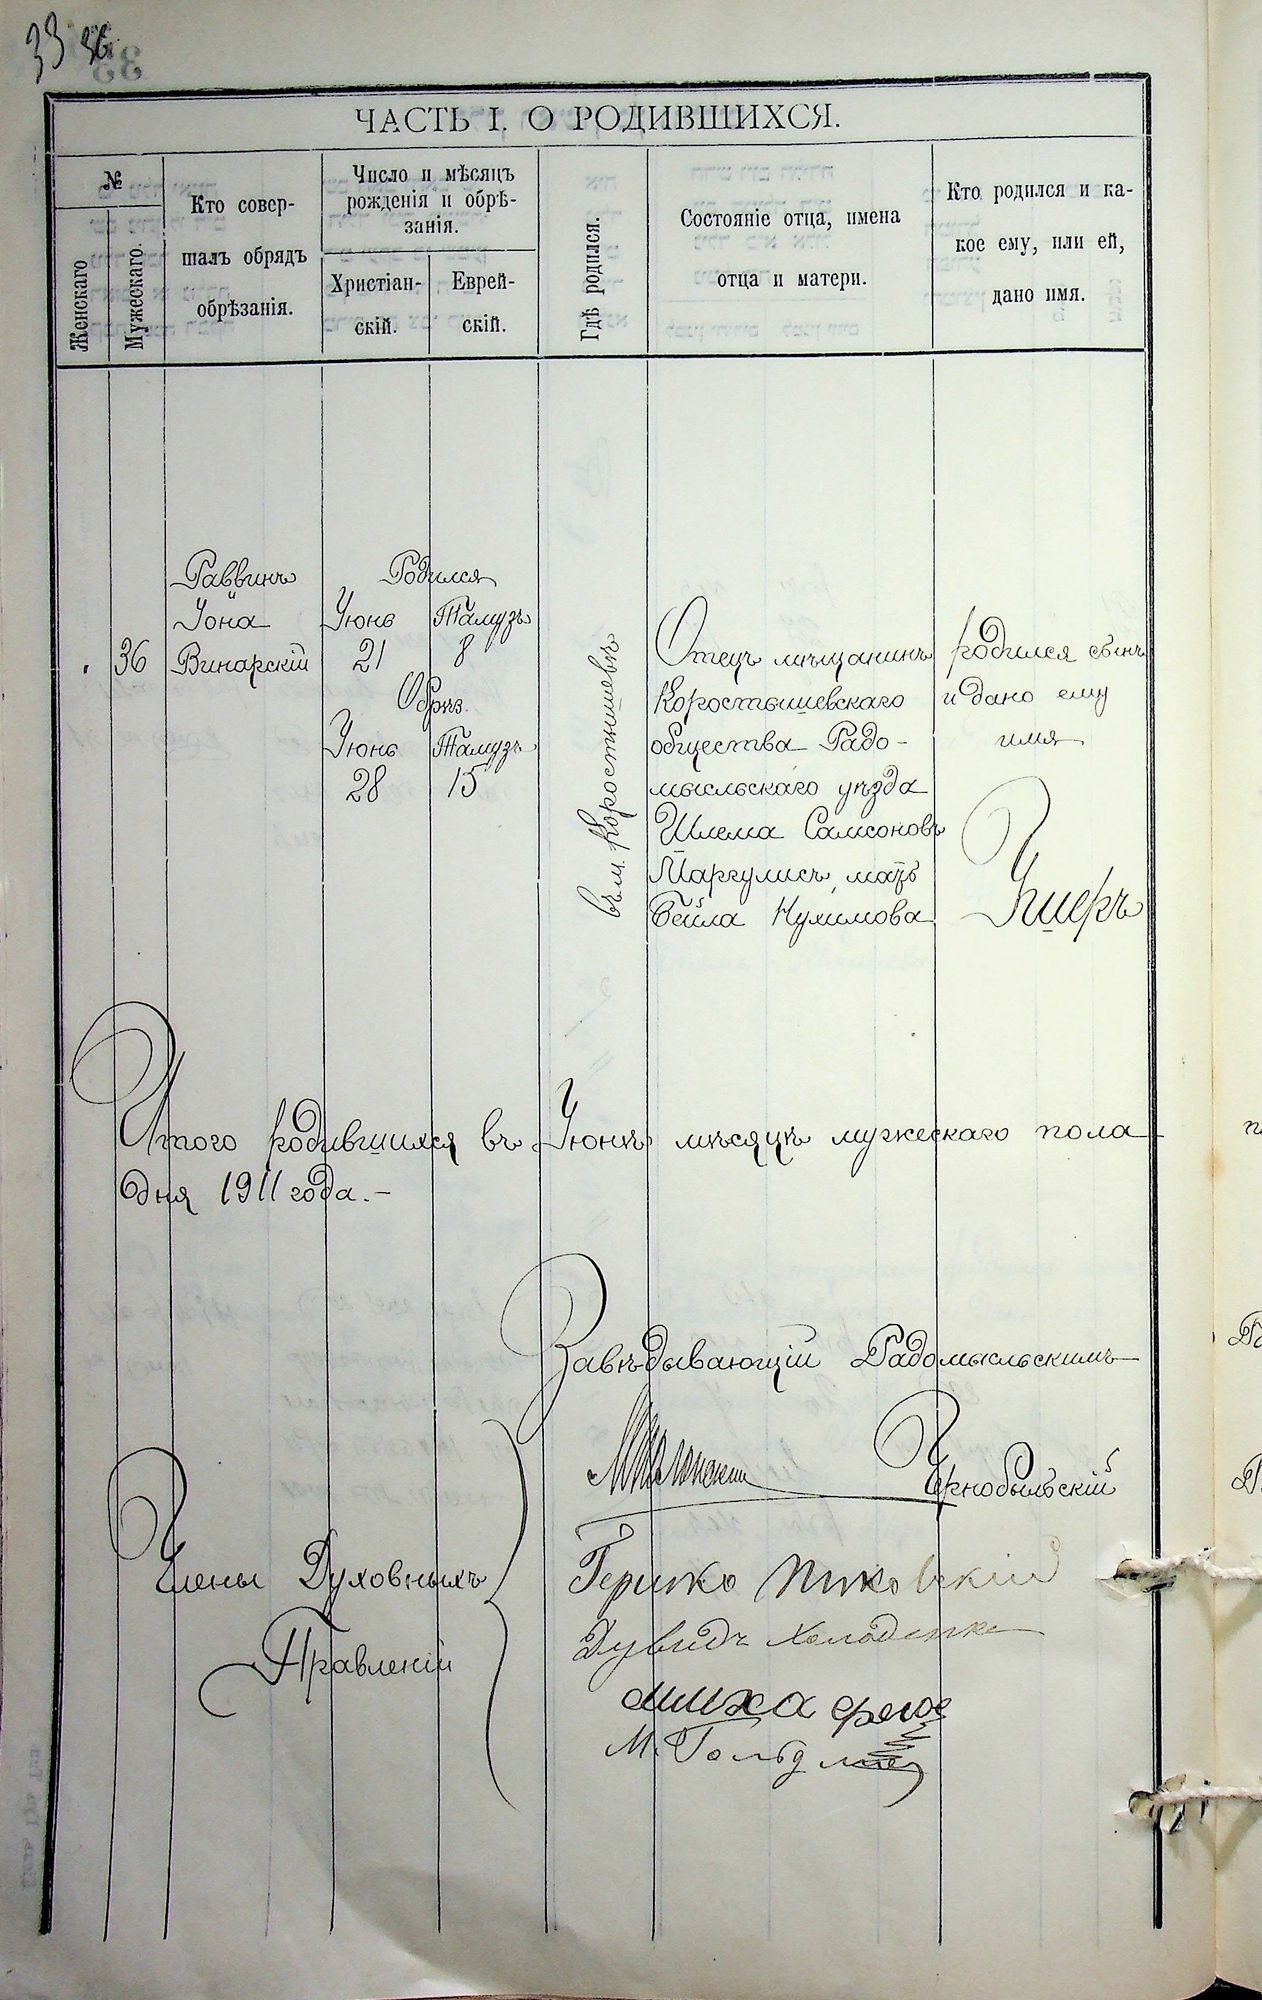 33 36
ЧАСТЬ I. О РОДИВШИХСЯ.
№
Женскаго
Мужескаго.
Кто совер-
шалъ обрядъ
обрѣзанія.
Число и мѣсяцъ
рожденія и обрѣ-
занія.
Христіан-
скій.
Еврей-
скій.
Гдѣ родился.
Состояніе отца, имена
отца и матери.
Кто родился и ка-
кое ему, или ей,
дано имя.
36
Раввинъ
Іона
Винарскій
Родился
Іюнь Тамузъ
21 8
Обрѣз.
Іюнь Тамузъ
28 15
въ м. Коростышевѣ
Отецъ мѣщанинъ
Коростышевскаго
общества Радо-
мысльскаго уѣзда
Шлема Самсоновъ
Маргулисъ, мать
Бейла Нухимова
родился сынъ
и дано ему
имя
Ушеръ
Итого родившихся въ Іюнѣ мѣсяцѣ мужескаго пола
дня 1911 года.-
Завѣдывающій Радомысльскимъ
Чернобыльскій
Члены Духовныхъ
Правленій
Гершко
Дувидъ Холоденко
М. Гольд